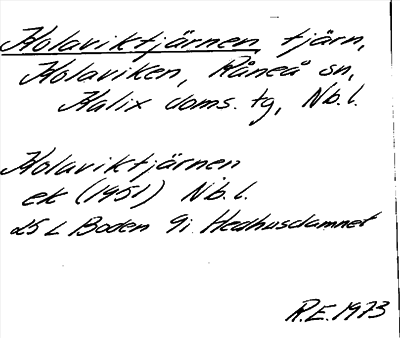 Kolaviktjärnen tjärn,
Kolaviken, Råneå sn,
Kalix doms. tg, Nb. l.
Kolaviktjärnen
ek (1951) Nb. l.
25 L Boden 9i Hedhusdammet
R.E. 1973